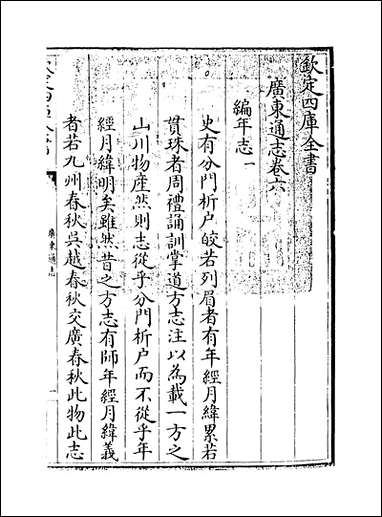 欽定四庫全書
廣東通志卷六
編年志一
史有分門析户皎若列眉者有年經月緯累若
貫珠者周禮誦訓掌道方志注以為載一方之
山川物產然則志從乎分門析户而不從乎年
經月緯明矣雖然昔之方志有師年經月緯義
者若九州春秋吳越春秋交廣春秋此物此志
廣東通志
一